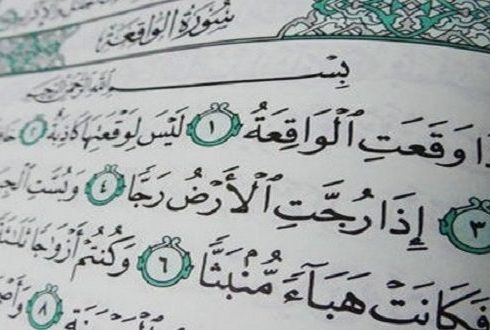 سُورَةُ الوَاقِعَة
بِسْمِ اللَّهِ الرَّحْمَٰنِ الرَّحِيمِ
ذَا وَقَعَتِ ٱلْوَاقِعَةُ ١ لَيْسَ لِوَقْعَتِهَا كَاذِبَةٌ ٢
٣ إِذَا رُجَّتِ ٱلْأَرْضُ رَجًّا ٤ وَبُسَّتِ ٱلْجِ
فَكَانَتْ هَبَآءً مُّنۢبَثًّا ٦ وَكُنتُمْ أَزْوَٰجًا ثَلَٰثَ
٨